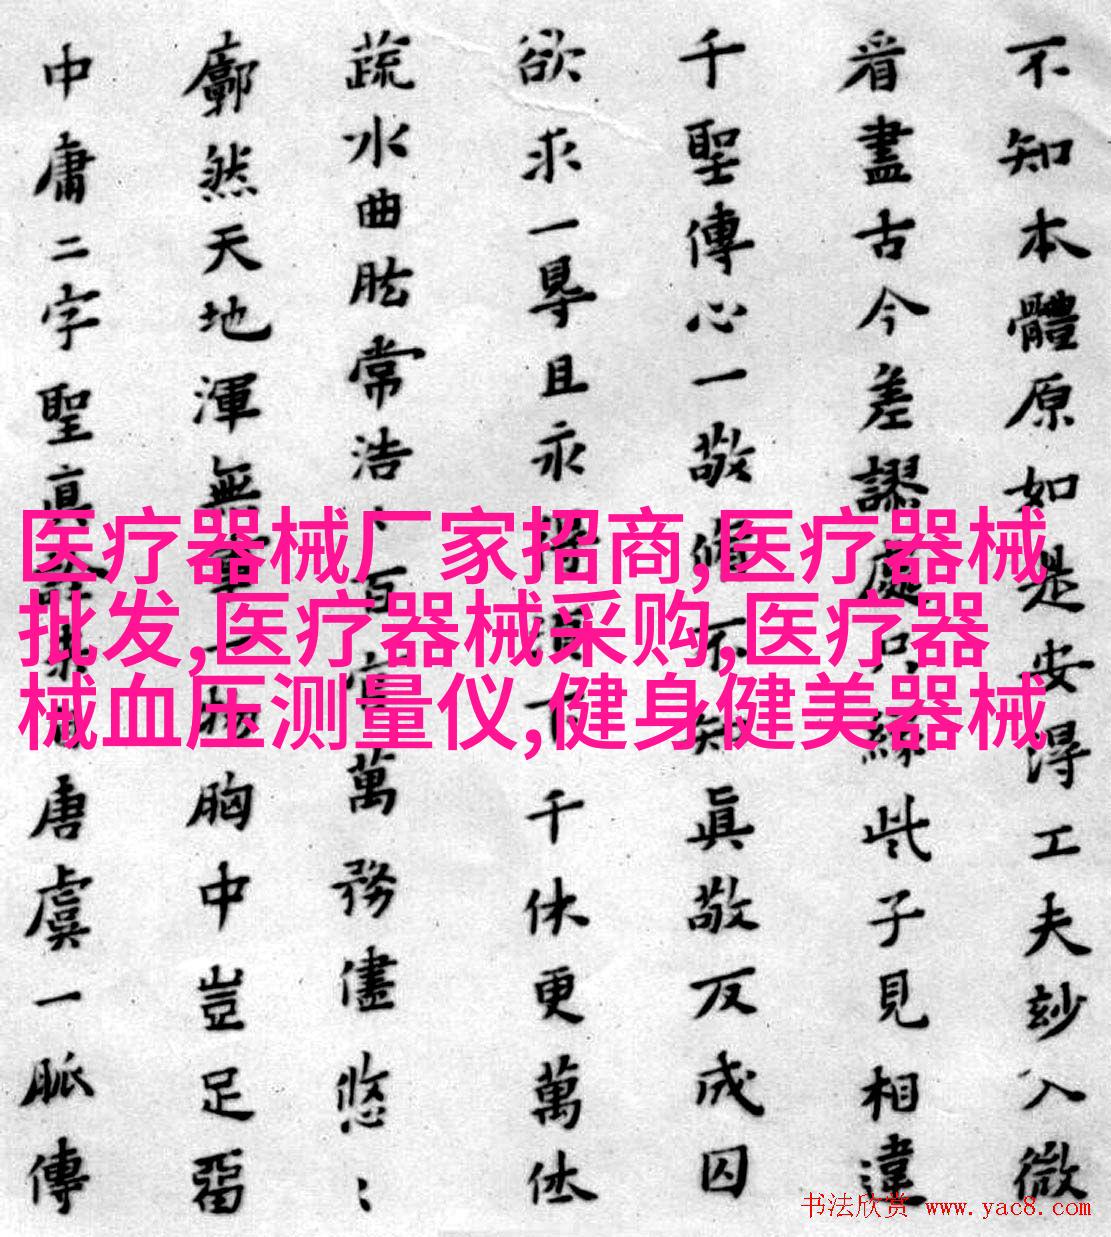 不知本體原如是安得工夫玅入微
看盡古今差謬處只緣此子見相違
千聖傳心一敬脩不知眞敬反成囚
欲求一旱且永得須下千休更萬休
蔬水曲肱常浩〻百忘萬務儘悠〻
廓然天地渾無事一物胸中豈足畱
中庸二字聖眞唐虞一脈傳
医疗器械厂家招商,医疗器械
批发,医疗器械采购,医疗器
械血压测量仪,健身健美器械
书法欣赏 www.yac8.com